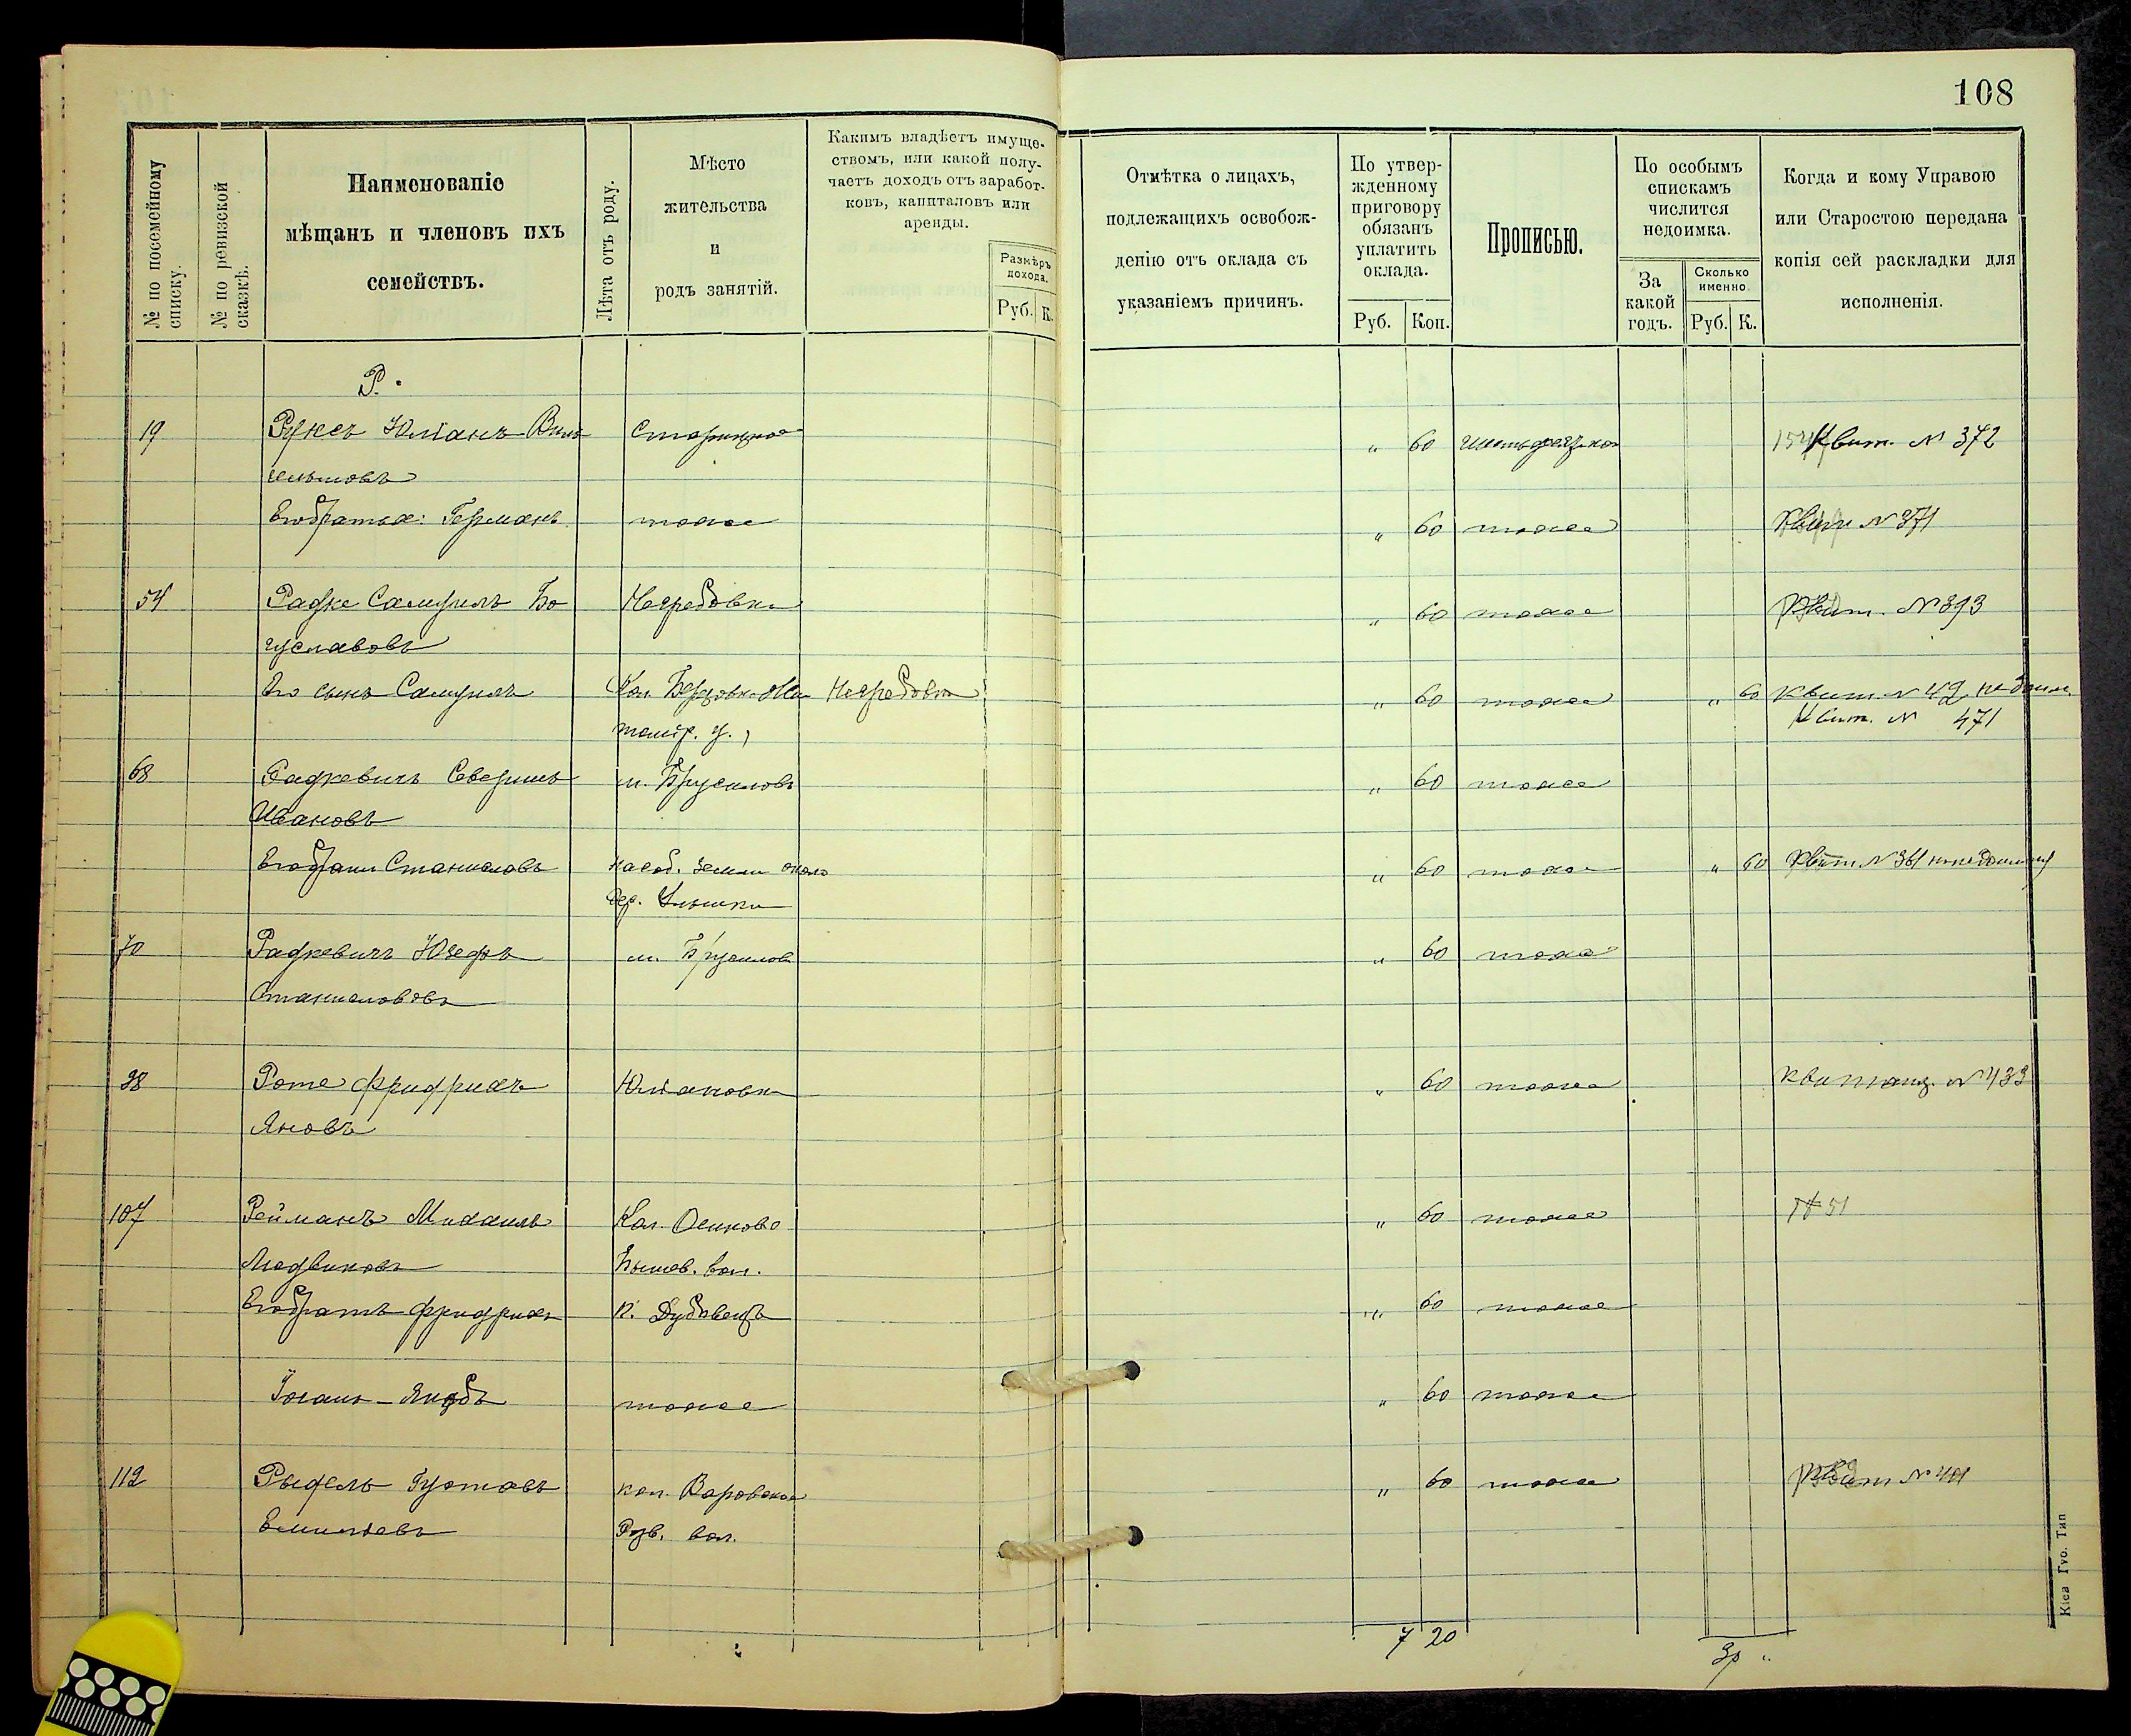 108
№ по посемейному списку.
№ по ревизской сказкѣ.
Наименованіе
мѣщанъ и членовъ ихъ
семействъ.
Лѣта отъ роду.
Мѣсто
жительства
и
родъ занятій.
Какимъ владѣетъ имуще-
ствомъ, или какой полу-
чаетъ доходъ отъ заработ-
ковъ, капиталовъ или
аренды.
Размѣръ
дохода.
Руб. К.
Отмѣтка о лицахъ,
подлежащихъ освобож-
денію отъ оклада съ
указаніемъ причинъ.
По утвер-
жденному
приговору
обязанъ
уплатить
оклада.
Руб. Коп.
Прописью.
По особымъ
спискамъ
числится
недоимка.
За
какой
годъ.
Сколько
именно.
Руб. К.
Когда и кому Управою
или Старостою передана
копія сей раскладки для
исполненія.
Р.
19 Руксъ Юліанъ Виль „ 60 Квит. № 372
гельмовъ
Его братья: Германъ тоже „ 60 тоже Квит № 371
54 Радке Самуилъ Бо Негребовка „ 60 тоже Квит. № 393
гуславовъ
Его сынъ Самуилъ Кол. Негребовка „ 60 тоже „ 60 Квит. № 42
у. Квит. № 471
68 Радкевичъ Северинъ м. Брусиловъ „ 60 тоже
Ивановъ
Его братъ Станиславъ на соб. земли около „ 60 тоже „ 60 Квит № 361
дер.
70 Радкевичъ Юзефъ м. Брусиловъ „ 60 тоже
Станиславовъ
98 Роте Фридрихъ Юліановка „ 60 тоже Квитанц. № 433
Яновъ
107 Рейманъ Михаилъ Кол. Осиково „ 60 тоже № 51
Людвиковъ Бышев. вол.
Его братъ Фридрихъ к. Дубовецъ „ 60 тоже
Іоганъ-Якобъ тоже „ 60 тоже
112 Рыдель Густавъ кол. „ 60 тоже Квит №
Емиліевъ вол.
7 20
3р „
Кіев Гуо. Тип